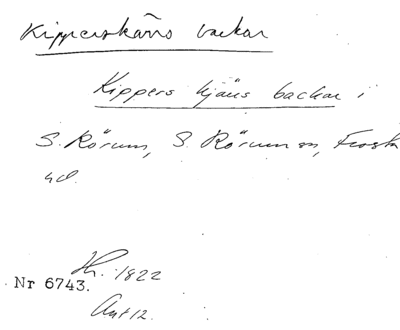 Kipperskärrs backar
Kippers kjäus backar i
S. Rörum, S. Rörum sn, Frosta
hd.
Hr. 1822
Nr 6743.
Ant 12.